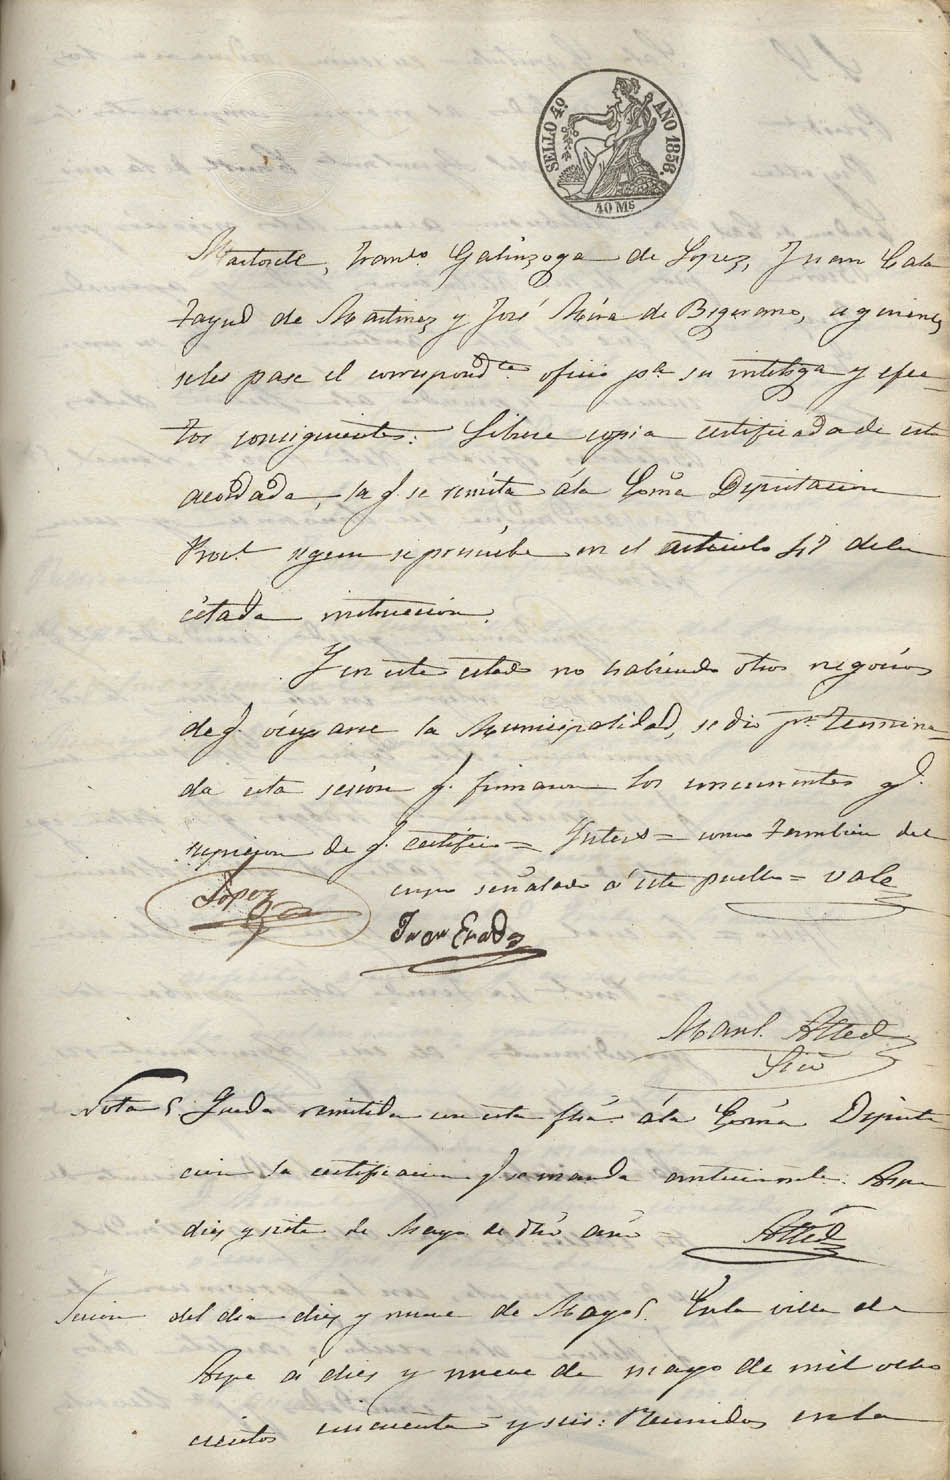 SELLO 4º AÑO 1856.
40 Ms
Franco. Galinsoga de Lopez, Juan Cala
tayud de Martinez y José Mira de Bejerano, a quienes
seles pase el correspondte. oficio pa. su inteliga y efec-
tos consiguientes: Librese copia certificada de este
acordada, la q. se remita ála Exma Diputacion
Provl. segun se previene en el articulo 47 dela
citada instruccion.
Y en este estado no habiendo otros negocios
de q. ocuparse la Municipalidad, se dio pr. termina-
da esta sesion q. firmaron los concurrentes q.
supieron de q. certifico = Enters = como tambien del
cupo señalado á este pueblo = vale
Lopez
Juan Erades
Manl. Alted
Srio
Nota Queda remitida con esta fha. ála Exma Diputa
cion la certificacion q. se manda anteriormte. Aspe
diez y siete de Mayo de dho año =
Alted
Sesion del dia diez y nueve de Mayo. Enla villa de
Aspe á diez y nueve de mayo de mil ocho
cientos cincuenta y seis: Reunidos enla